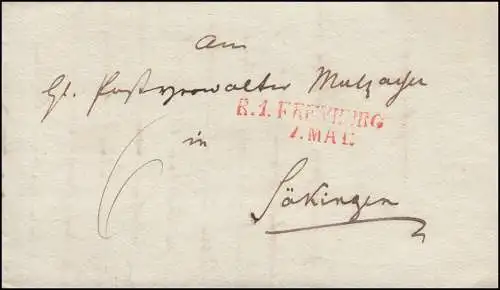 An
H. Postverwalter Malzacher
R.1. FREYBURG
7. MAI.
in
6
Säkingen